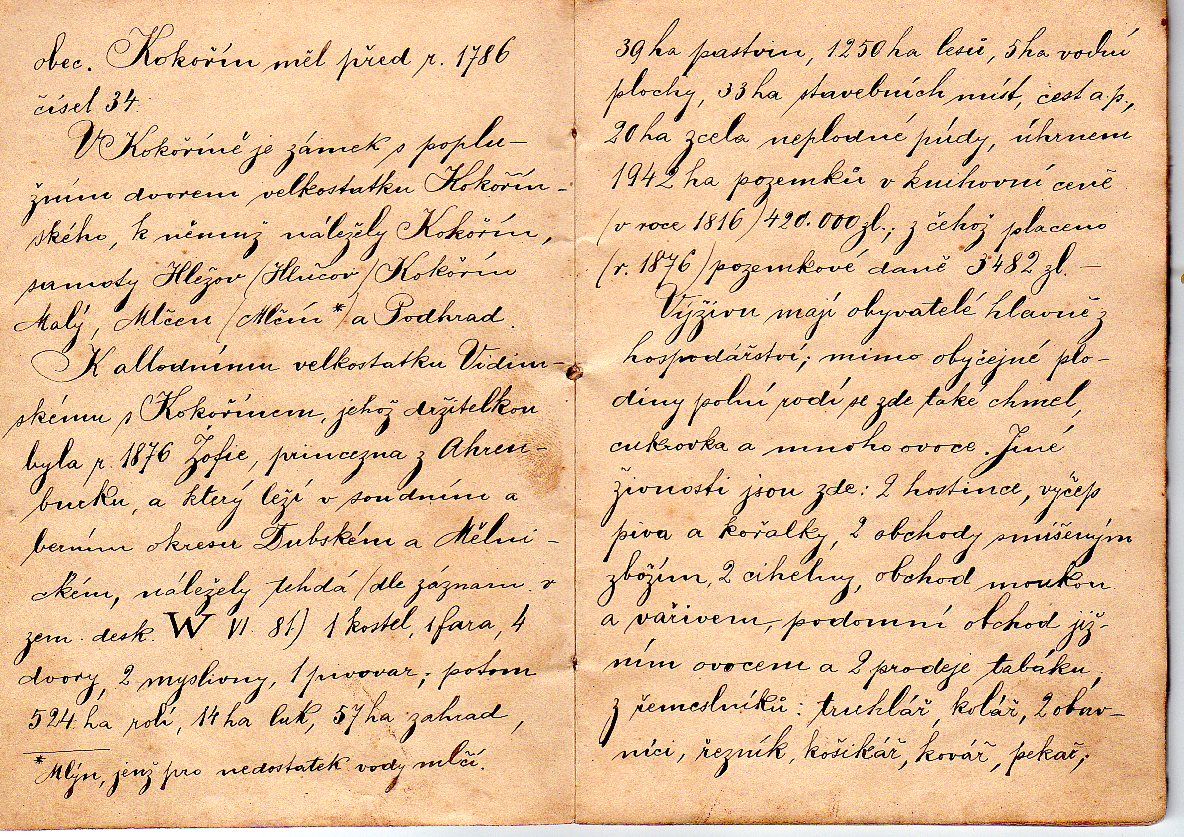 obec. Kokořín měl před r. 1786
čísel 34.
V Kokoříně je zámek s poplu-
žním dvorem velkostatku Kokořín-
ského, k němuž náležely Kokořín,
samoty Hlėžov /Hlučov/ Kokořín
Malý, Mlčen /Mlčín */ a Podhrad.
K allodnímu velkostatku Vidim-
skému s Kokořínem, jehož držitelkou
byla r. 1876 Žofie, princezna z Ahren-
burku, a který leží v soudním a
berním okresu Dubském a Mělni-
ckém, náležely tehdá /dle záznam. v
zem. desk. W VI. 81) 1 kostel, 1 fara, 4
dvory, 2 myslivny, 1 pivovar; potom
524 ha rolí, 14 ha luk, 57 ha zahrad,
* Mlýn, jenž pro nedostatek vody mlčí.
39 ha pastvin, 1250 ha lesů, 5 ha vodní
plochy, 33 ha stavebních míst, cest a.p.,
20 ha zcela neplodné půdy, úhrnem
1942 ha pozemků v knihovní ceně
/v roce 1816/ 420.000 zl.; z čehož placeno
(r. 1876) pozemkové daně 3482 zl. –
Výživu mají obyvatelé hlavně z
hospodářství; mimo obyčejné plo-
diny polní rodí se zde také chmel,
cukrovka a mnoho ovoce. Jiné
živnosti jsou zde: 2 hostince, výčep
piva a kořalky, 2 obchody smíšeným
zbožím, 2 cihelny, obchod moukou
a vařivem, podomní obchod již-
ním ovocem a 2 prodeje tabáku,
z řemeslníků: truhlář, kolář, 2 obuv-
níci, řezník, košíkář, kovář, pekař,